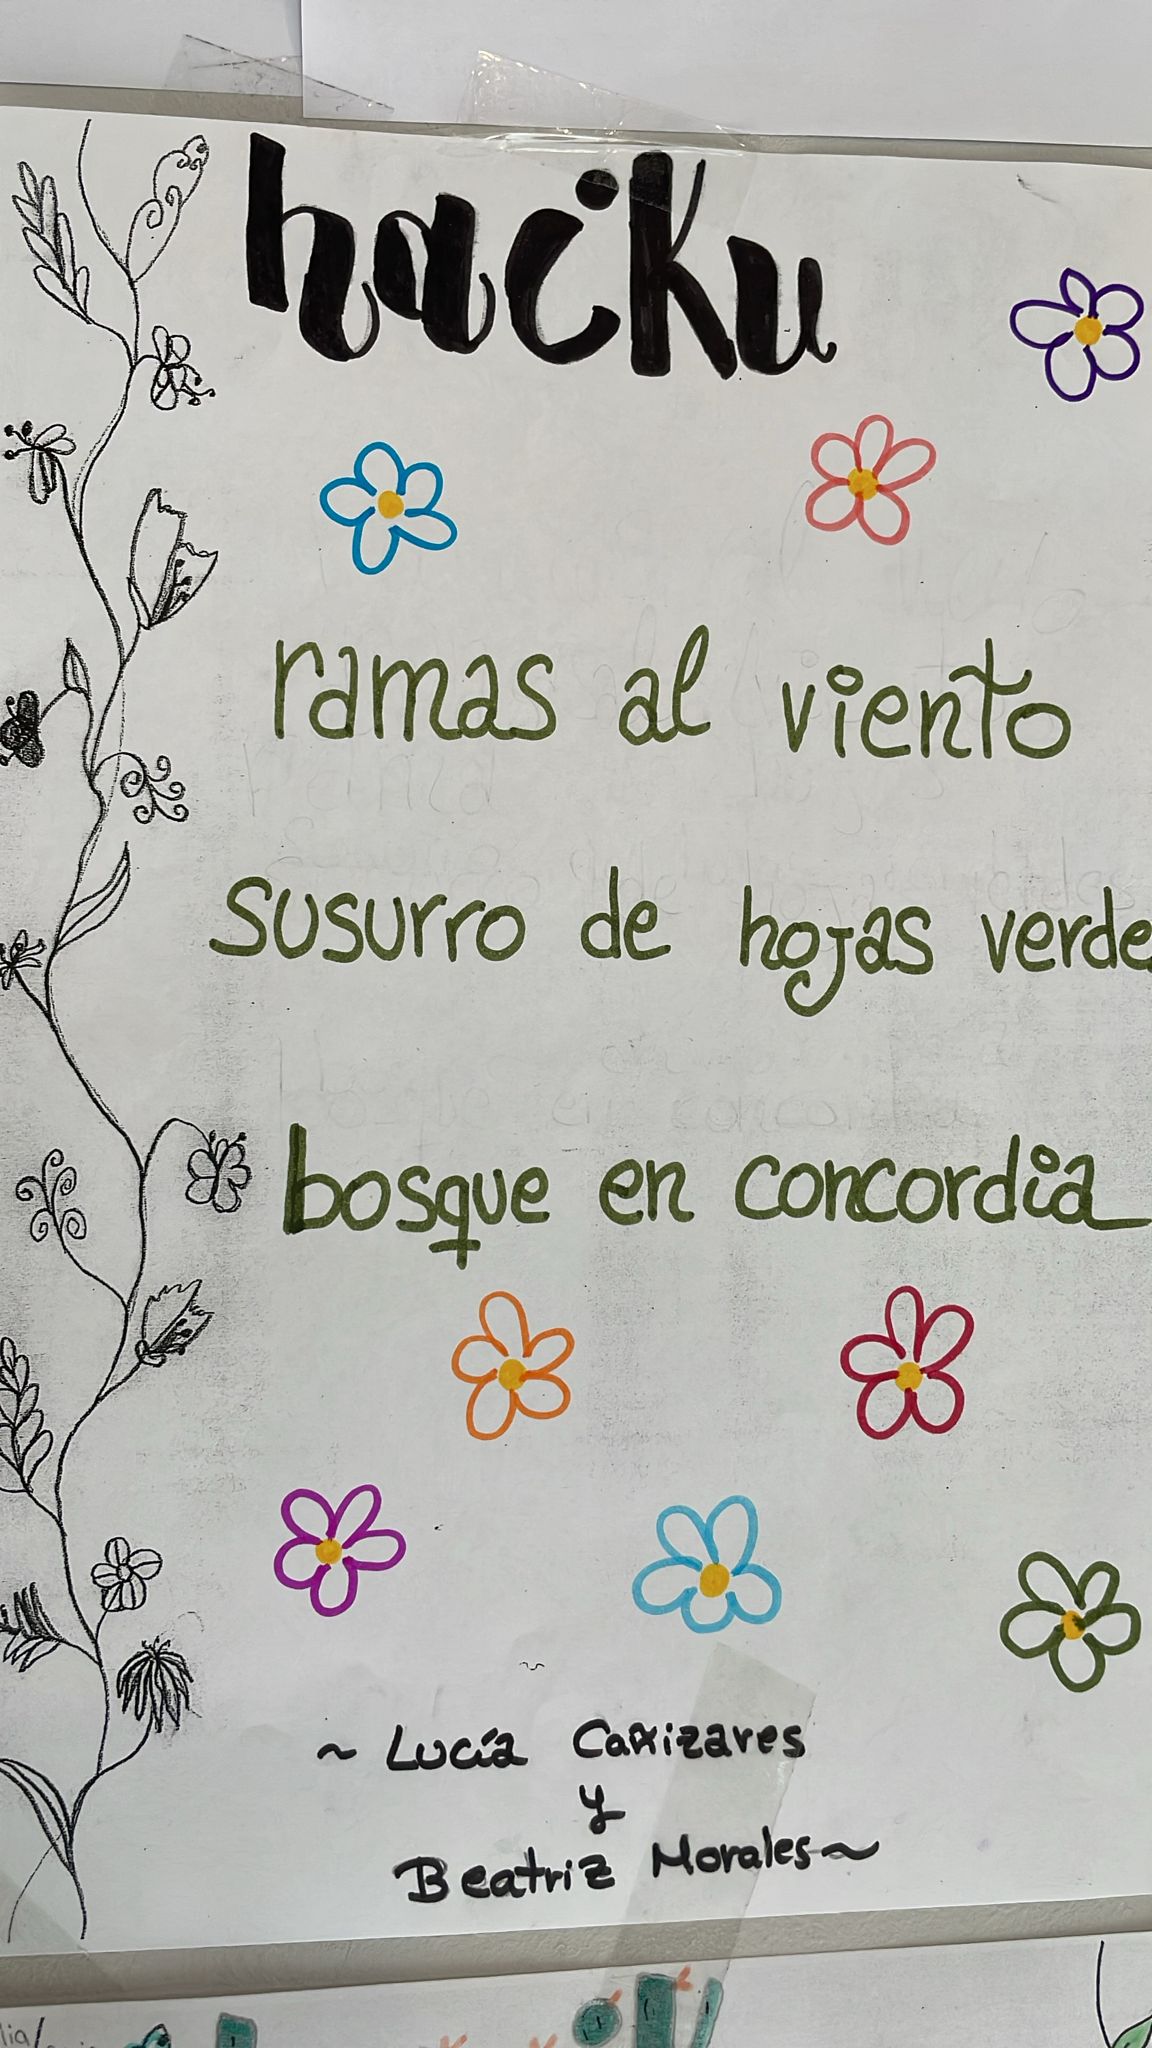 haiku
ramas al viento
susurro de hojas verde
bosque en concordia
~ Lucía Cañizares
y
Beatriz Morales ~